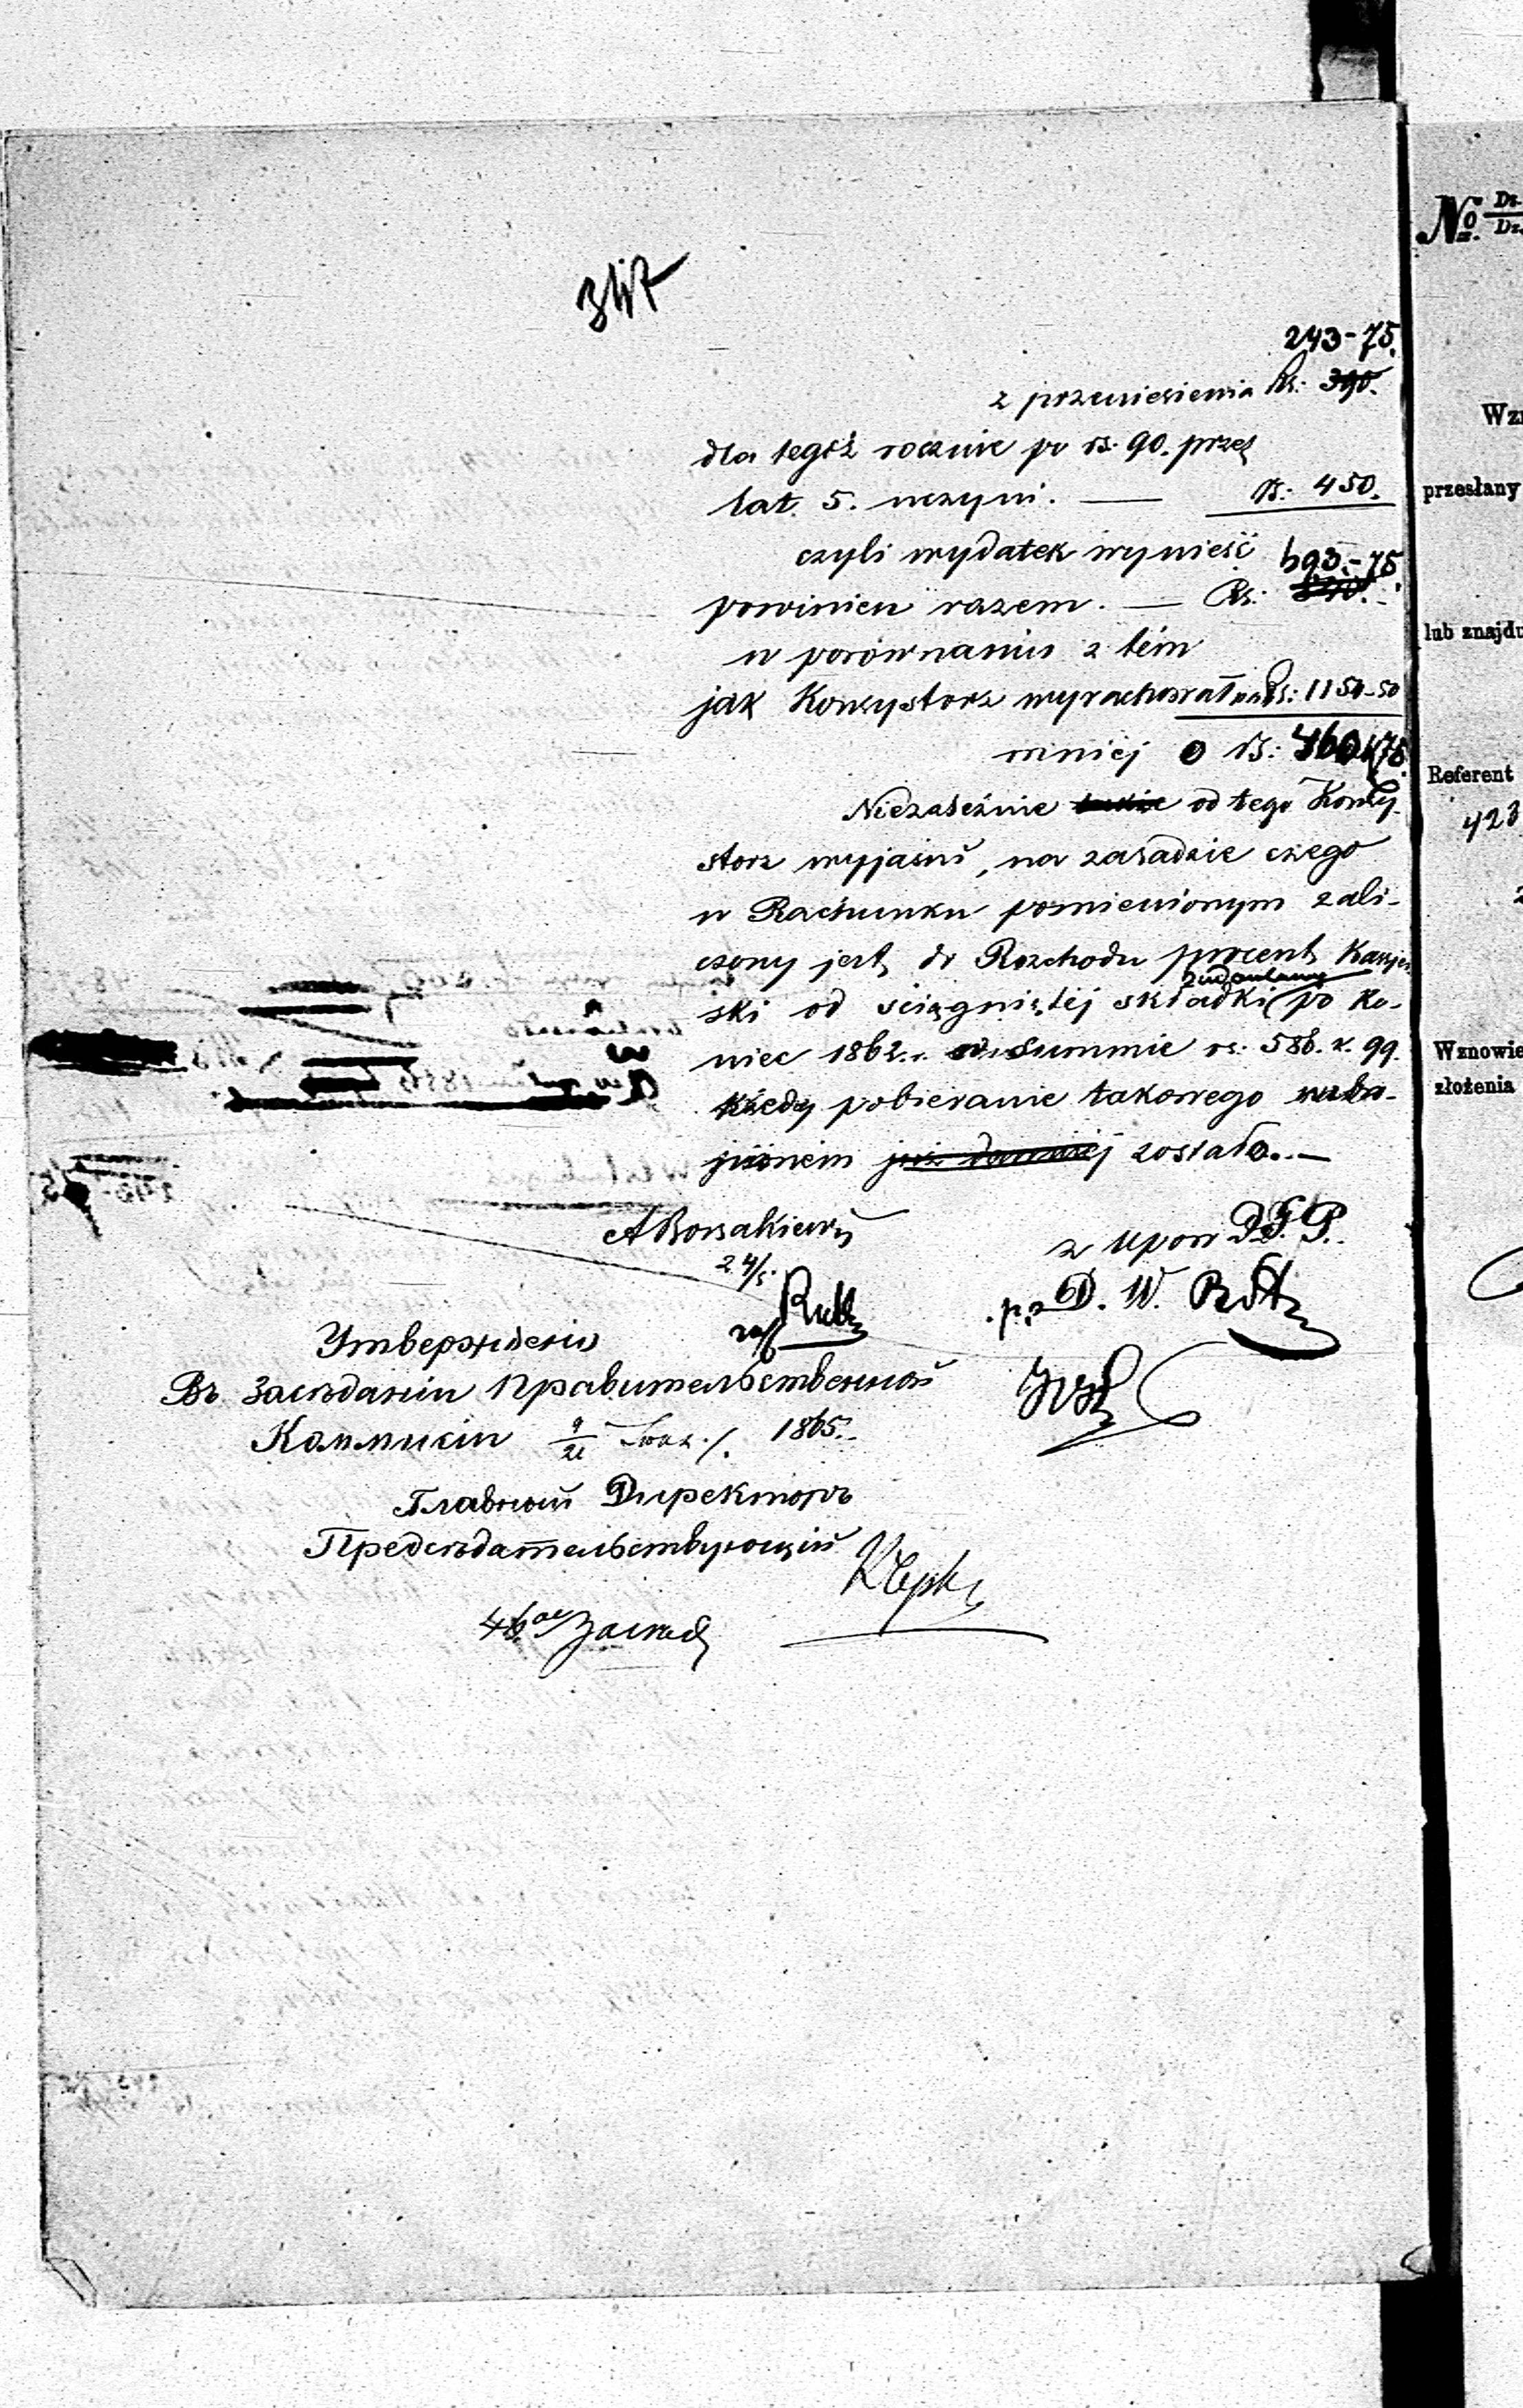 347
243-75.
z przeniesienia Rs: 390.
dla tegoż rocznie po rs. 90. przez
lat 5. uczyni. — rs: 450.
czyli wydatek wynieść 693.-75
powinien razem. — Rs:
w porównaniu z tém
jak Konsystorz wyrachował na Rs: 1154-50
mniej o rs: 460 k 75.
Niezależnie od tego Konsy-
storz wyjaśni, na zasadzie czego
w Rachunku pomienionym zali-
czony jest do Rozchodu procent Kassjer-
ski od ściągniętéj składki po ko-
niec 1862 r. w Summie rs. 586. k. 99.
kiedy pobieranie takowego
już dawniéj zostało. —
z upow D. G. P.
24/5.
p. o D. W.
Утверждено
Въ Засѣданіи Правительственной
Коммисіи 9/21 1865.
Главный Директоръ
Предсѣдательствующій
46 Засѣд
No. Dz.
Dz.
Wz
przesłany
lub znajdu
Referent
423
2
Wznowie
złożenia